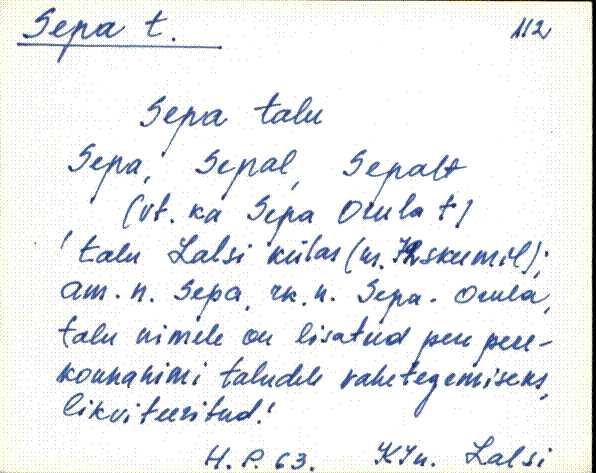 Sepa t. 112
Sepa talu
Sepa, Sepal, Sepalt
(vt. ka Sepa Orula t)
' talu Lalsi külas (m.
am. n. Sepa, rk. n. Sepa-Orula,
talu nimele on lisatud pere pere-
konnanimi taludele vahetegemiseks,
likviteeritud.'
H. P. 63. KJn. Lalsi